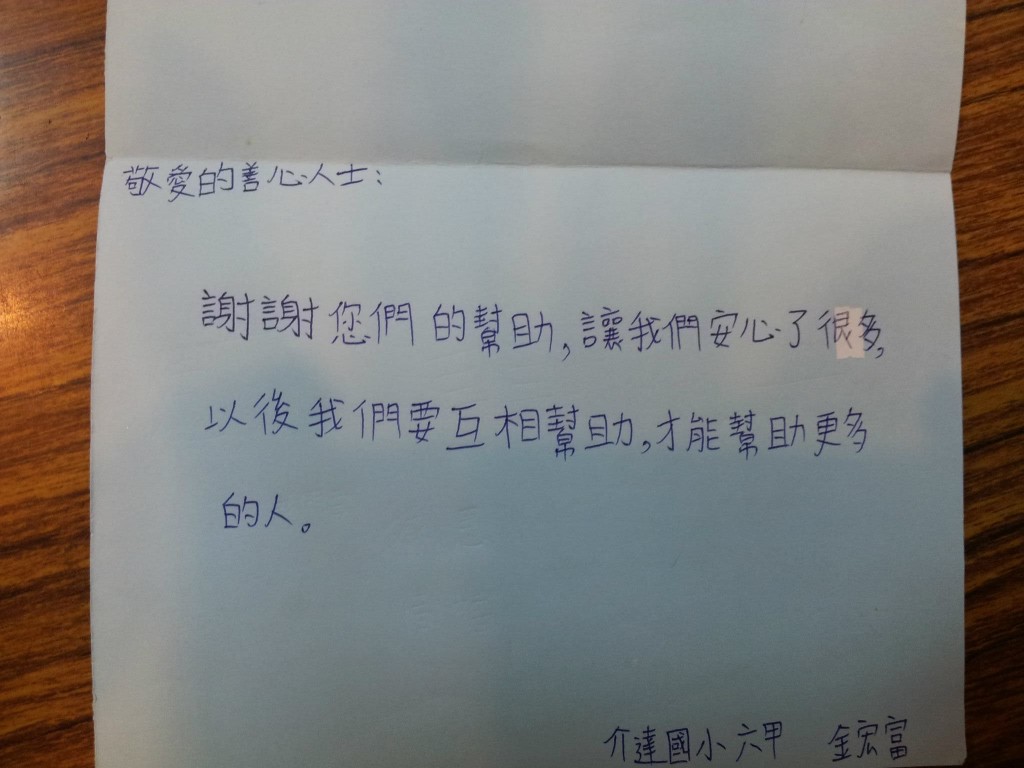 敬愛的善心人士:
謝謝您們的幫助,讓我們安心了很多,
以後我們要互相幫助,才能幫助更多
的人。
介達國小六甲 金宏富